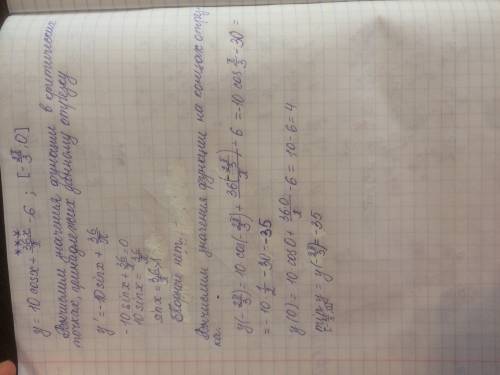 y = 10 cos x + 36x/π - 6 ; [-2π/3; 0]
Вычислим значения функции в критических
точках, принадлежащих данному отрезку
y' = -10 sin x + 36/π
-10 sin x + 36/π = 0
-10 sin x = 36/π
sin x
Вычислим значения функции на концах отрез
ка.
y(-2π/3) = 10 cos(-2π/3) + 36(-2π/3)/π - 6 = -10 cos π/3 - 30 =
= -10 · 1/2 - 30 = -35
y(0) = 10 cos 0 + 36·0/π - 6 = 10 - 6 = 4
y = y(-2π/3) = -35